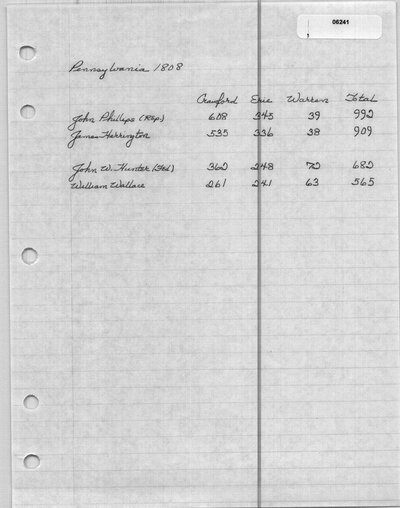 06241
Pennsylvania 1808
Crawford Erie Warren Total
John Phillips (Rep.) 608 345 39 992
James Herrington 535 336 38 909
John W. Hunter (Fed) 362 248 72 682
William Wallace 261 241 63 565